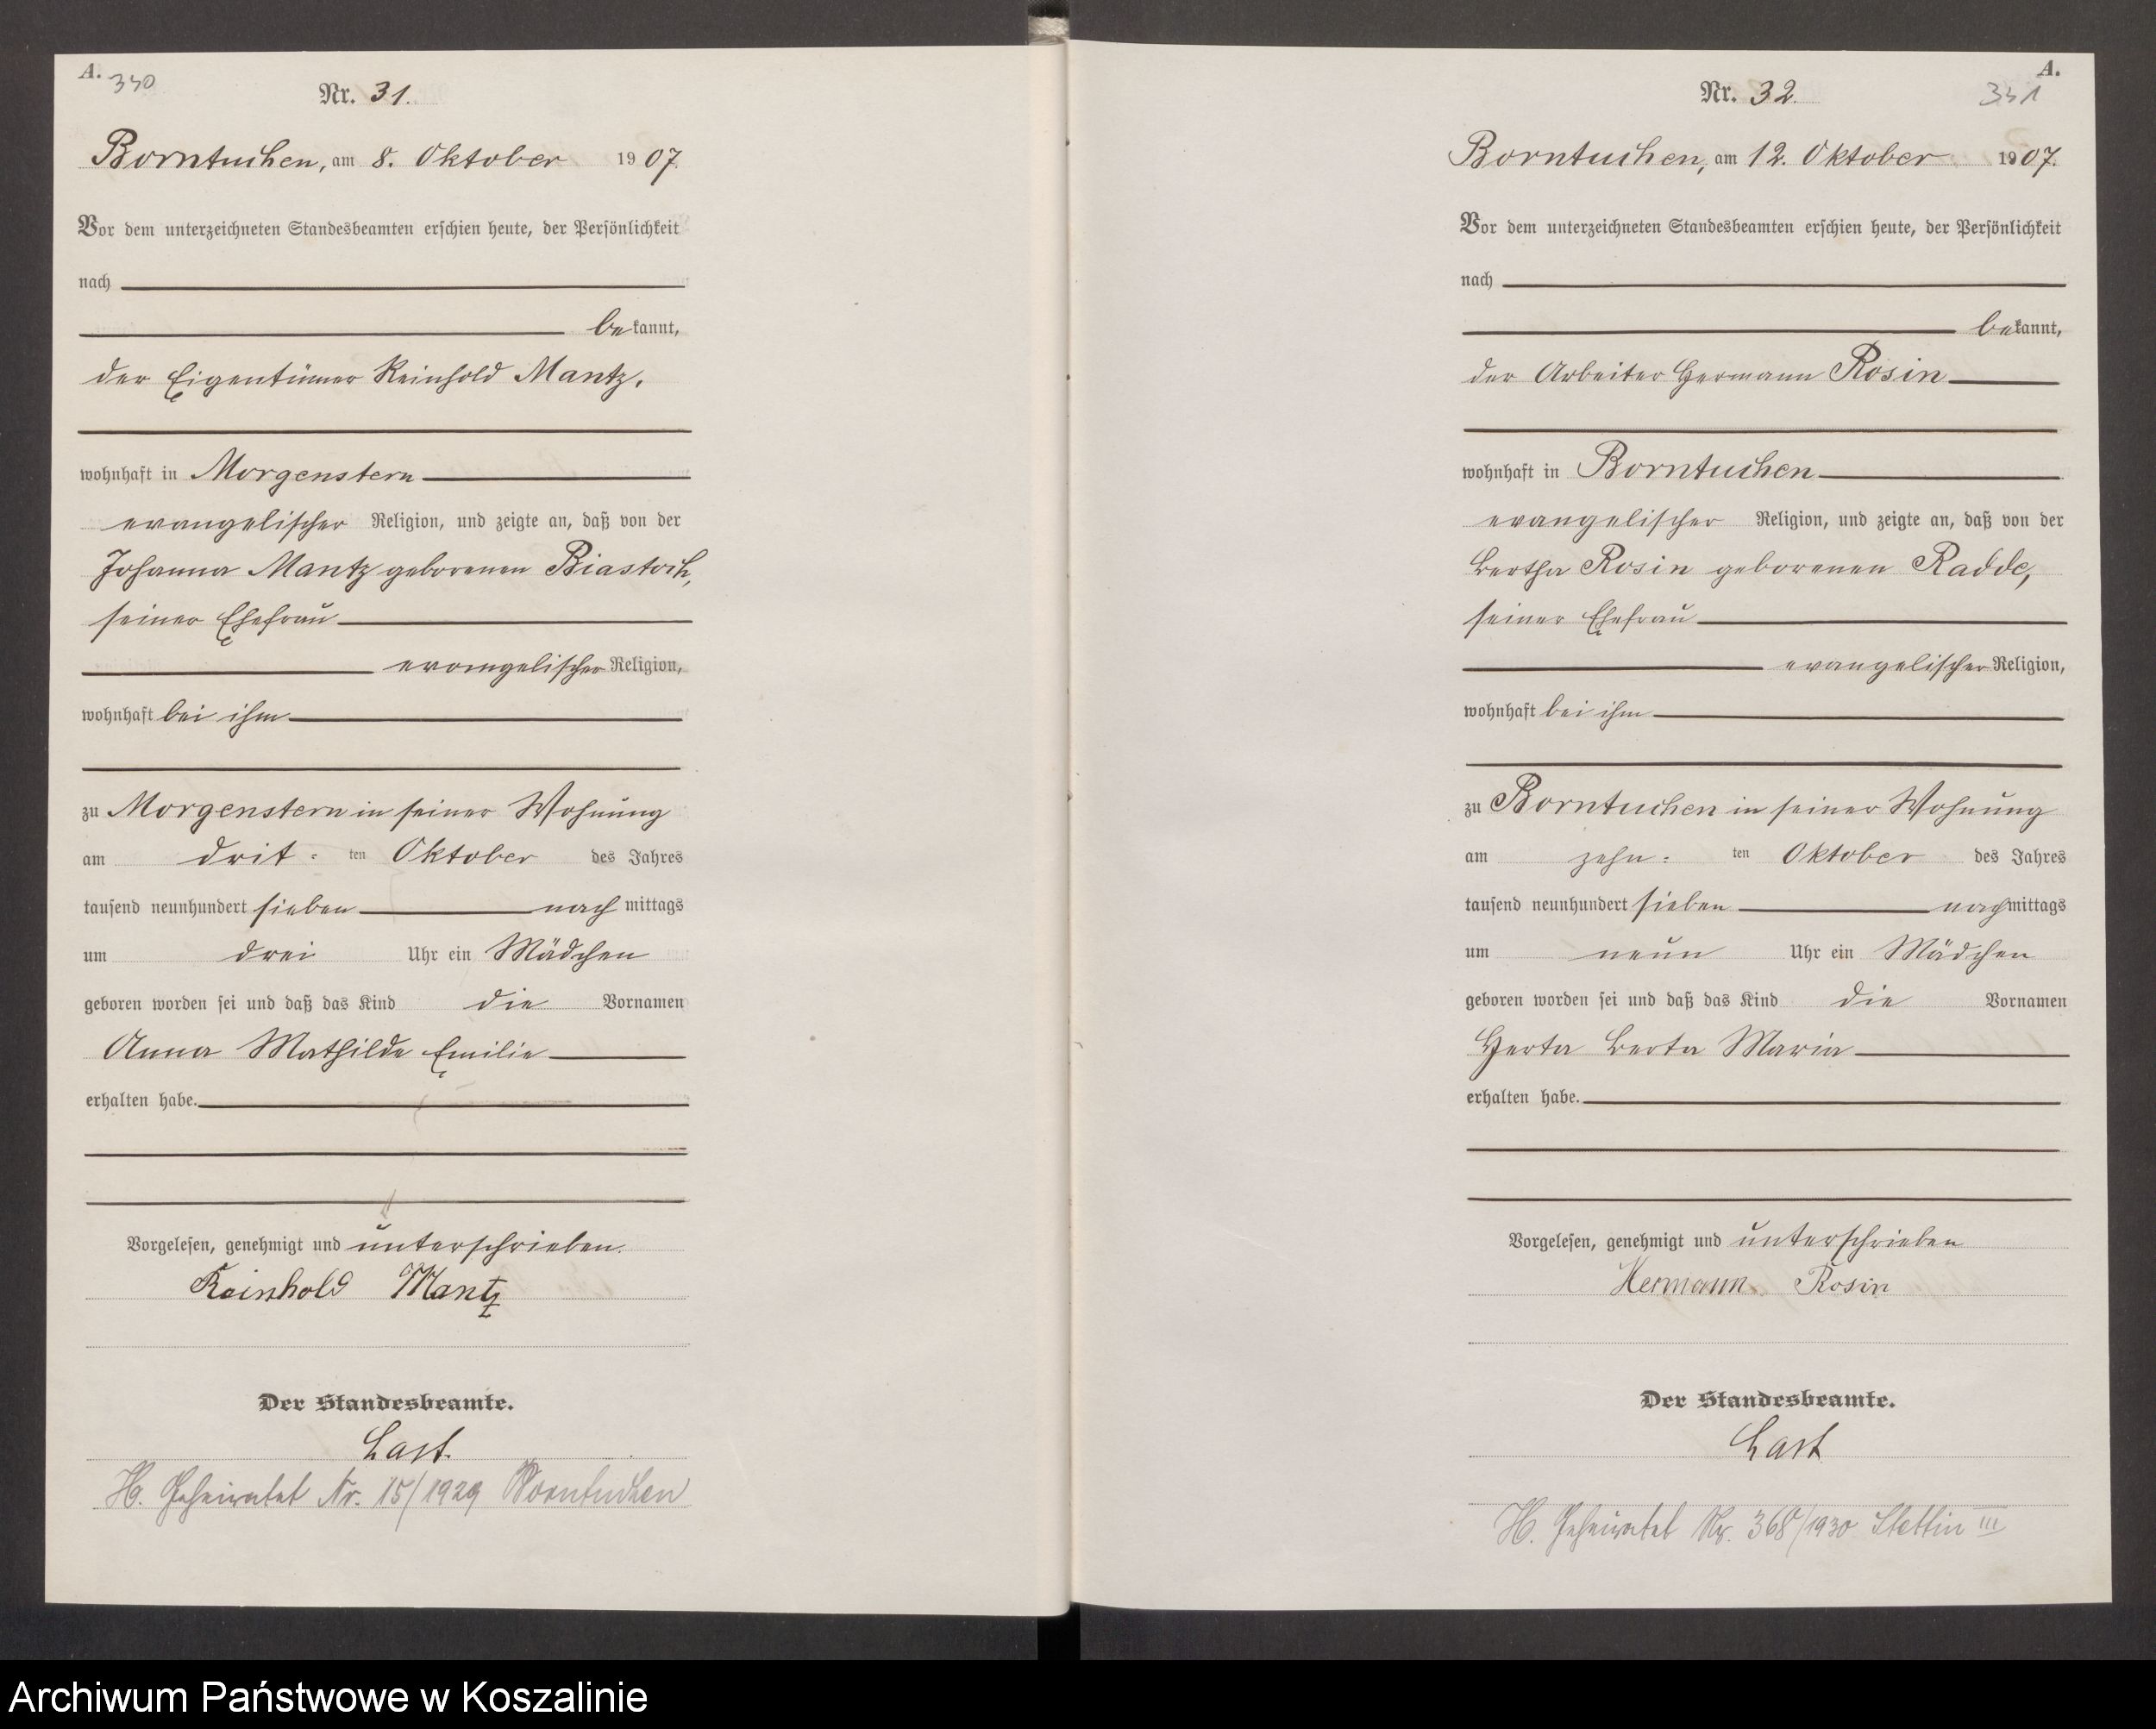 A.
340
Nr. 31.
Borntuchen, am 8. Oktober 1907.
Vor dem unterzeichneten Standesbeamten erschien heute, der Persönlichkeit
nach
bekannt,
der Eigentümer Reinhold Mantz,
wohnhaft in Morgenstern
evangelischer Religion, und zeigte an, daß von der
Johanna Mantz geborenen Biastoch,
seiner Ehefrau
evangelischer Religion,
wohnhaft bei ihm
zu Morgenstern in seiner Wohnung
am drit-ten Oktober des Jahres
tausend neunhundert sieben nachmittags
um drei Uhr ein Mädchen
geboren worden sei und daß das Kind die Vornamen
Anna Mathilde Emilie
erhalten habe.
Vorgelesen, genehmigt und unterschrieben.
Reinhold Mantz
Der Standesbeamte.
Last.
H. Geheiratet Nr. 15/1929 Borntuchen
A.
341
Nr. 32.
Borntuchen, am 12. Oktober 1907.
Vor dem unterzeichneten Standesbeamten erschien heute, der Persönlichkeit
nach
bekannt,
der Arbeiter Hermann Rosin
wohnhaft in Borntuchen
evangelischer Religion, und zeigte an, daß von der
Bertha Rosin geborenen Radde,
seiner Ehefrau
evangelischer Religion,
wohnhaft bei ihm
zu Borntuchen in seiner Wohnung
am zehn-ten Oktober des Jahres
tausend neunhundert sieben nachmittags
um neun Uhr ein Mädchen
geboren worden sei und daß das Kind die Vornamen
Herta Berta Maria
erhalten habe.
Vorgelesen, genehmigt und unterschrieben
Hermann Rosin
Der Standesbeamte.
Last
H. Geheiratet Nr. 368/1930 Stettin III
Archiwum Państwowe w Koszalinie